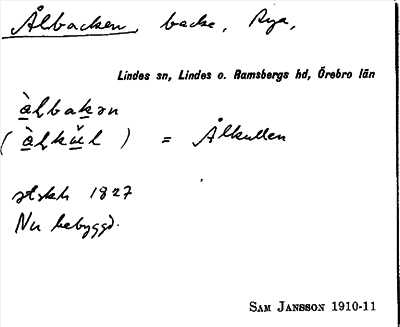 Ålbacken, backe, Rya,
Lindes sn, Lindes o. Ramsbergs hd, Örebro län
àlbakən
(àlkŭl) = Ålkullen
1827
Nu bebyggd.
SAM JANSSON 1910-11